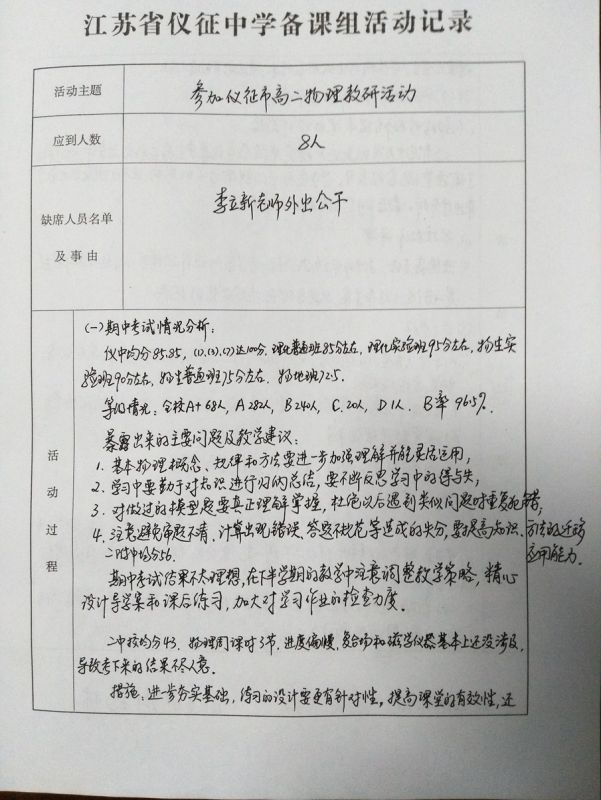 江苏省仪征中学备课组活动记录
活动主题
参加仪征市高二物理教研活动
应到人数
8人
缺席人员名单
及事由
李立新老师外出公干
活动过程
(一)期中考试情况分析:
仪中均分85.85, (1).(3).(7)达100分, 理化普通班85分左右, 理化实验班95分左右, 物生实
验班90分左右, 物生普通班75分左右. 物地班72.5.
等级情况: 全校A+ 68人, A 282人, B 240人, C. 20人, D 1人. B率 96.5%.
暴露出来的主要问题及教学建议:
1. 基本物理概念、规律和方法要进一步加强理解并能灵活运用,
2. 学习中要勤于对知识进行归纳总结, 要不断反思学习中的得与失,
3. 对做过的模型题要真正理解掌握, 杜绝以后遇到类似问题时重复犯错,
4. 注意避免审题不清、计算出现错误、答题不规范等造成的失分, 要提高知识、方法的迁移
应用能力.
二附中均分56.
期中考试结果不太理想, 在下半学期的教学中注意调整教学策略, 精心
设计导学案和课后练习, 加大对学习作业的检查力度.
二中校均分43. 物理周课时3节, 进度偏慢, 复合场和磁学仪器基本上还没涉及,
导致考下来的结果不尽人意.
措施: 进一步夯实基础, 练习的设计要更有针对性。提高课堂的有效性, 还